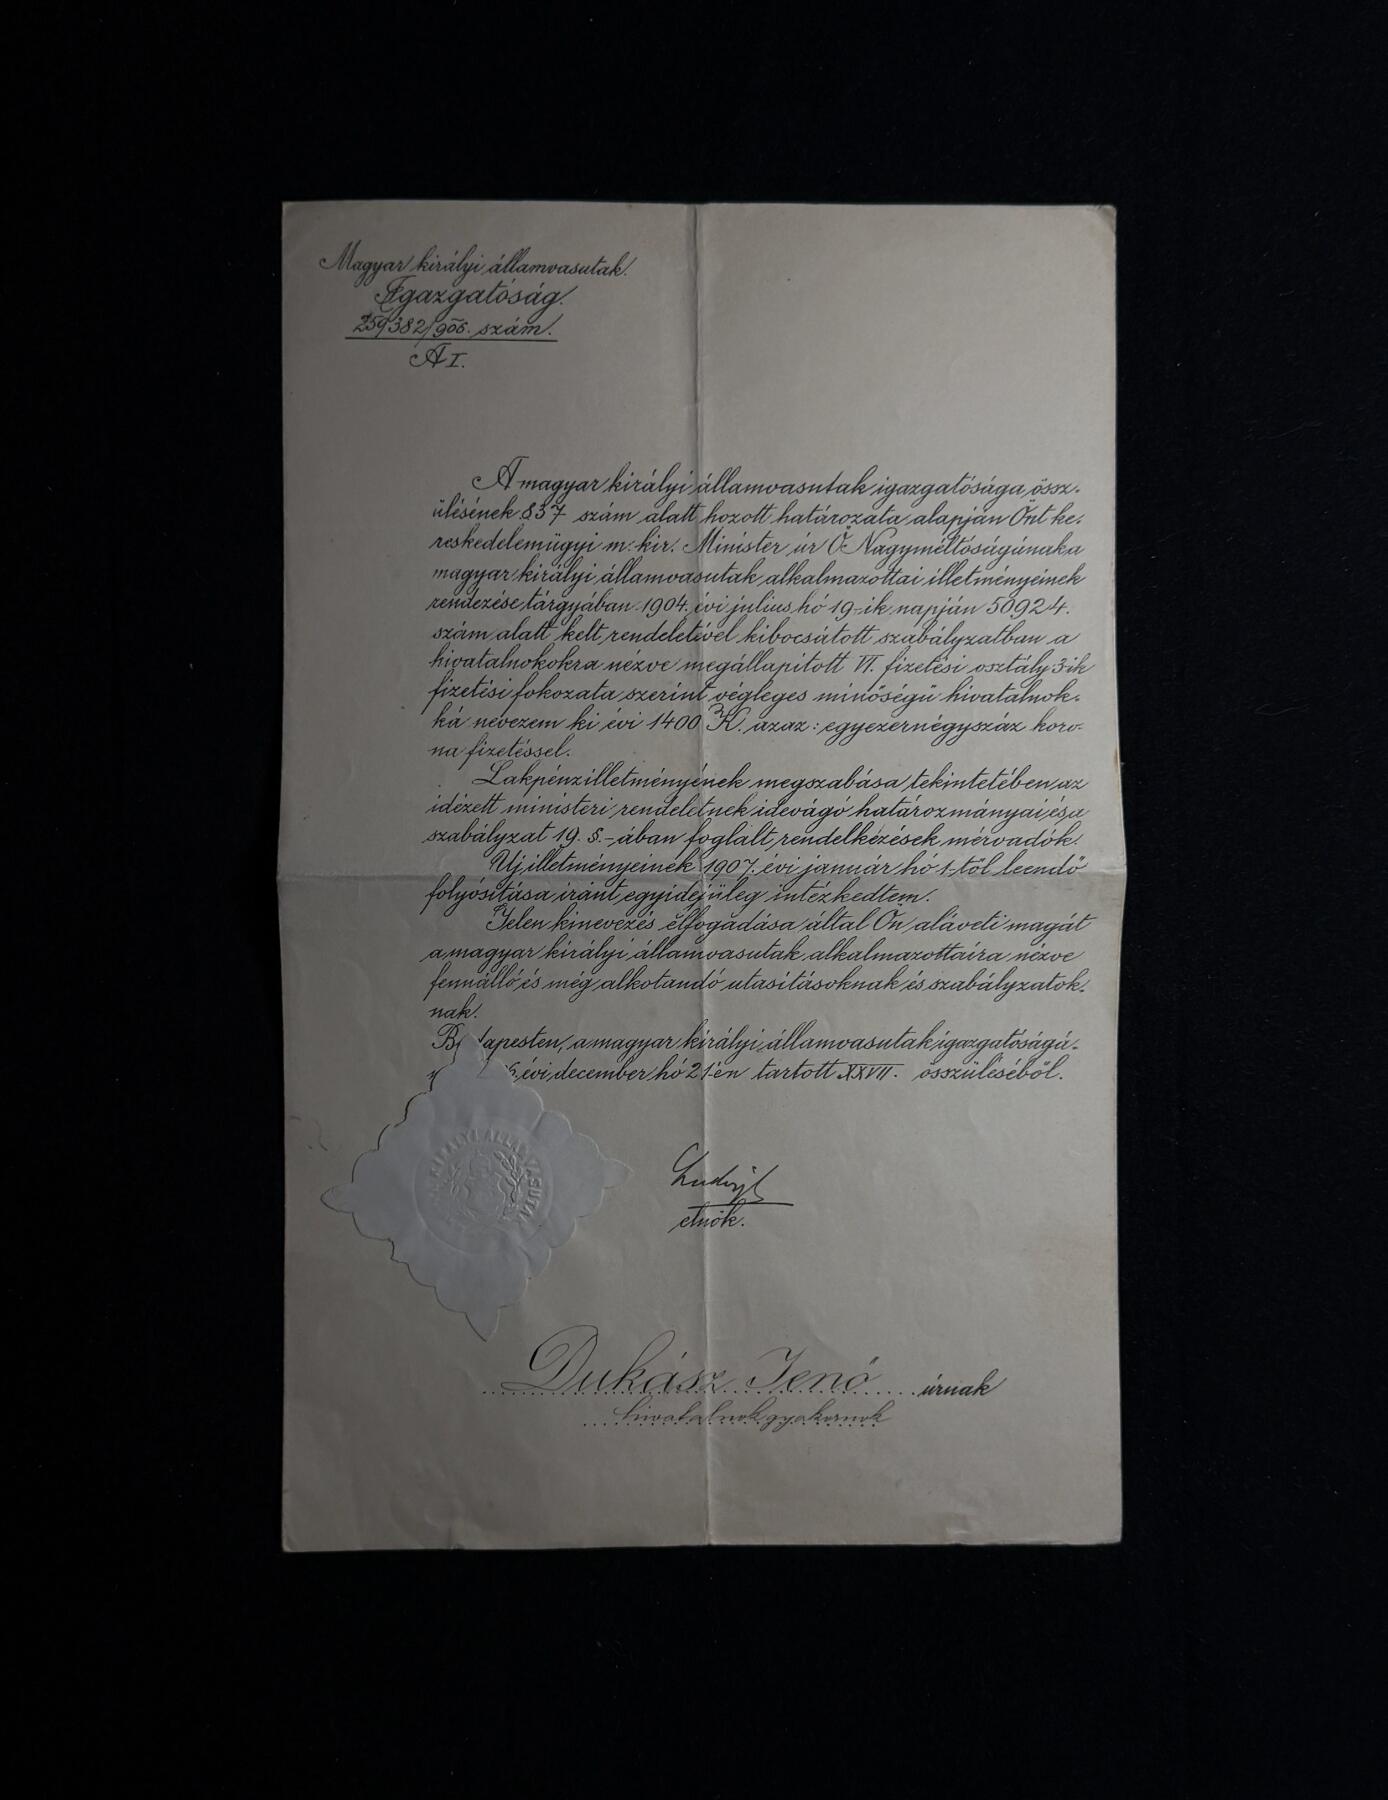 Magyar királyi államvasutak.
Igazgatóság.
259382/906. szám.
A I.
A magyar királyi államvasutak igazgatósága össz-
ülésének 837 szám alatt hozott határozata alapján Önt ke-
reskedelemügyi m. kir. Minister úr Ő Nagyméltóságának a
magyar királyi államvasutak alkalmazottai illetményeinek
rendezése tárgyában 1904. évi julius hó 19-ik napján 50924.
szám alatt kelt rendeletével kibocsátott szabályzatban a
hivatalnokokra nézve megállapitott VI. fizetési osztály 3-ik
fizetési fokozata szerint végleges minőségű hivatalnok-
ká nevezem ki évi 1400 K. azaz: egyezernégyszáz koro-
na fizetéssel.
Lakpénzilletményének megszabása tekintetében az
idézett ministeri rendeletnek idevágó határozmányai és a
szabályzat 19. §.-ában foglalt rendelkezések mérvadók.
Uj illetményeinek 1907. évi január hó 1-től leendő
folyósitása iránt egyidejűleg intézkedtem.
Jelen kinevezés elfogadása által Ön aláveti magát
a magyar királyi államvasutak alkalmazottaira nézve
fennálló és még alkotandó utasitásoknak és szabályzatok-
nak.
Budapesten, a magyar királyi államvasutak igazgatóságá-
6. évi december hó 21-én tartott XXVII. összüléséből.
KIRÁLYI ÁLLAMVASUTAK
Ludvigh
elnök.
Dukász Jenő úrnak
hivatalnokgyakornok